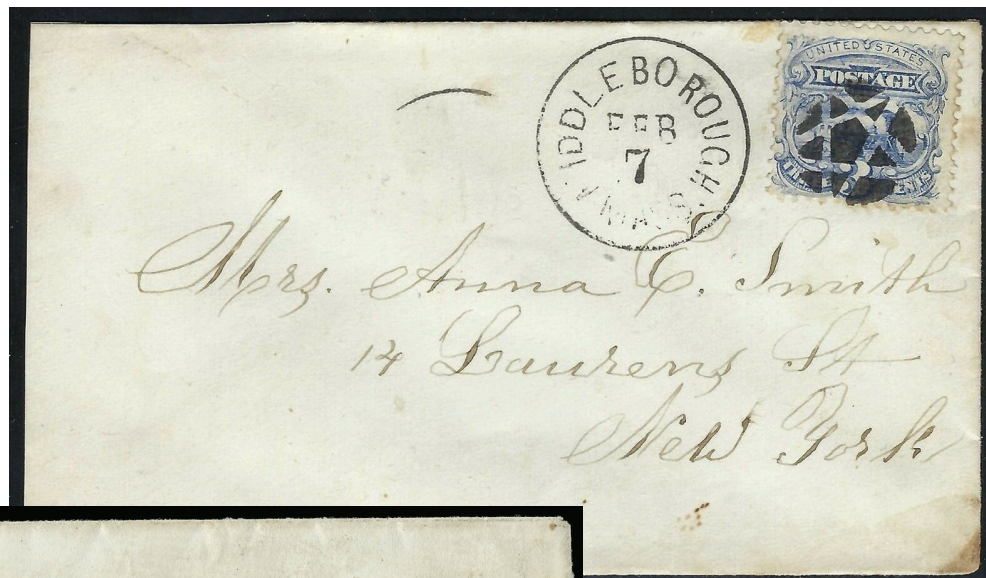 MIDDLEBOROUGH MASS.
FEB
7
UNITED STATES
POSTAGE
3
CENTS
Mrs. Anna C. Smith
14 Laurens St
New York